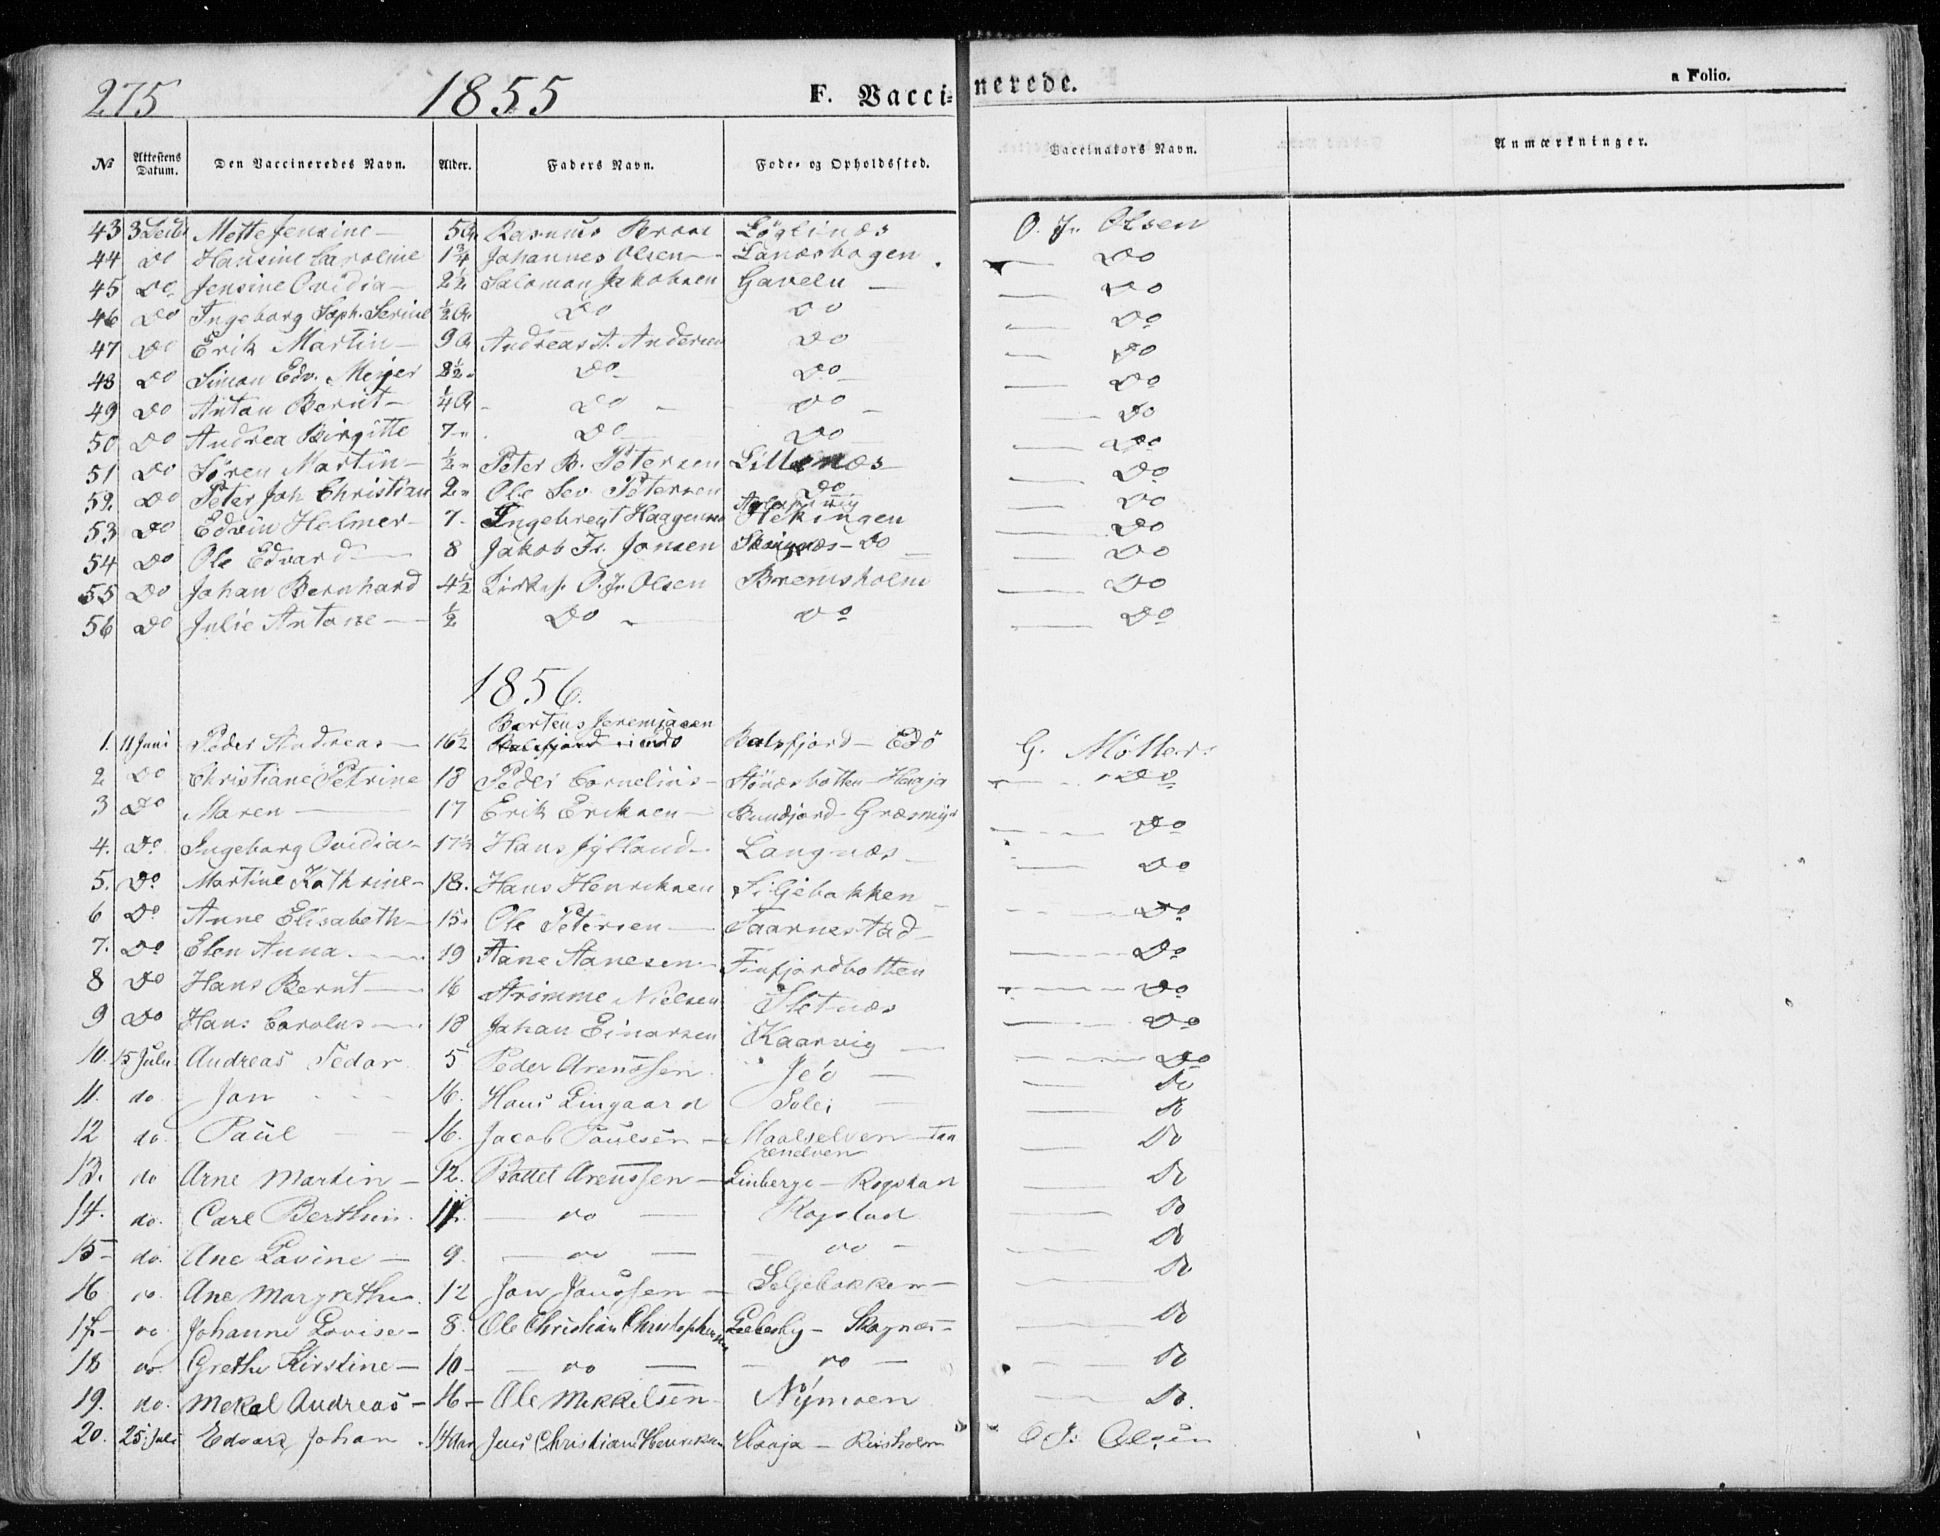 275 1855 F. Vaccinerede. a Folio.
No Attestens Datum. Den Vaccineredes Navn. Alder. Faders Navn. Føde- og Opholdssted. Vaccinators Navn. Anmærkninger.
43 3 Mette Jensine — 5 Rasmus O. Jr. Olsen
44 Do Hansine Caroline 1 3/4 Johannes Olsen — Lanæsbogen. — Do
45 Do Jensine Ovidia — 2 1/2 Salomon Jakobsen Gaveln — — Do
46 Do Ingeborg Soph. Serine 1/2 Do Do — Do
47 Do Erik Martin — 9 Andreas A. Andersen Do — Do
48 Do Simon Edv. Meyer 8 1/2 Do — Do — — Do
49 Do Anton Bernt — 1/4 Do — Do — — Do
50 Do Andrea Birgitte 7 Do — Do — Do
51 Do Sören Martin — 1/2 Peter B. Petersen Lillenæs — — Do
52 Do Peter Joh Christian 2 Ole Sev. Petersen Do — Do
53 Do Edvin Helmer — 7 Ingebregt Haagensen Hekingen — Do
54 Do Ole Edvard — 8 Jakob Fr. Jonsen Skognæs — Do — Do
55 Do Johan Bernhard 4 1/2 Kirkes. O. Jr. Olsen Bremsholm — Do
56 Do Julie Antone — 1/2 Do — Do — Do
1856.
Berteus Jeremiasen
1. 11 Juni Peder Andreas — 16 1/2 Balsfjord Balsfjord — Edö G. Møller
2 Do Christiane Petrine 18 Peder Cornelius — Stönæsbotten — Haaja — Do
3 Do Maren — 17 Erik Eriksen — Græsmyr — Do
4. Do Ingeborg Ovidia — 17 1/2 Hans Jylland — Langnæs — — Do
5. Do Martine Kathrine — 18. Hans Henriksen Siljebakken — Do
6 Do Anne Elisabeth — 15 Ole Petersen — Taarnestad — — Do
7. Do Elen Anna — 19 Aane Aanesen — Finfjordbotten — Do
8 Do Hans Bernt — 16 Strømme Nielsen Sletnæs — Do
9 Do Hans Carolus — 18 Johan Einarsen Kaarvig — — Do
10. 15 Julii Andreas Pedar 5 Peder Arentssen Jeö — — Do
11. do. Jon 16. Hans Lingaard Solei — — Do
12 do. Paul — 16. Jacob Paulsen — Maalselven — Taa — Do
renelven
13. do Arne Martin — 12. Bottel Arentssen — Linberge — Rogstad — Do
14. do. Carl Berthin 11 — do — Rogstad — Do
15 — do. Ane Lovine — 9. — do — — do — — Do
16 do. Ane Margrethe 12 Jon Jonssen — Seljebakken — — Do
17 — do. Johanne Lovise — 8. Ole Christian Christophersen Skognæs — — Do
18 do. Grethe Kirstine — 10 — — do — — do — — Do
19. do. Mekal Andreas — 16 — Ole Mikkelsen Nymoen — Do.
20. 25 Juli Edvard Johan 14 Jens Christian Henriksen Haaja — Risholm O. Jr. Olsen